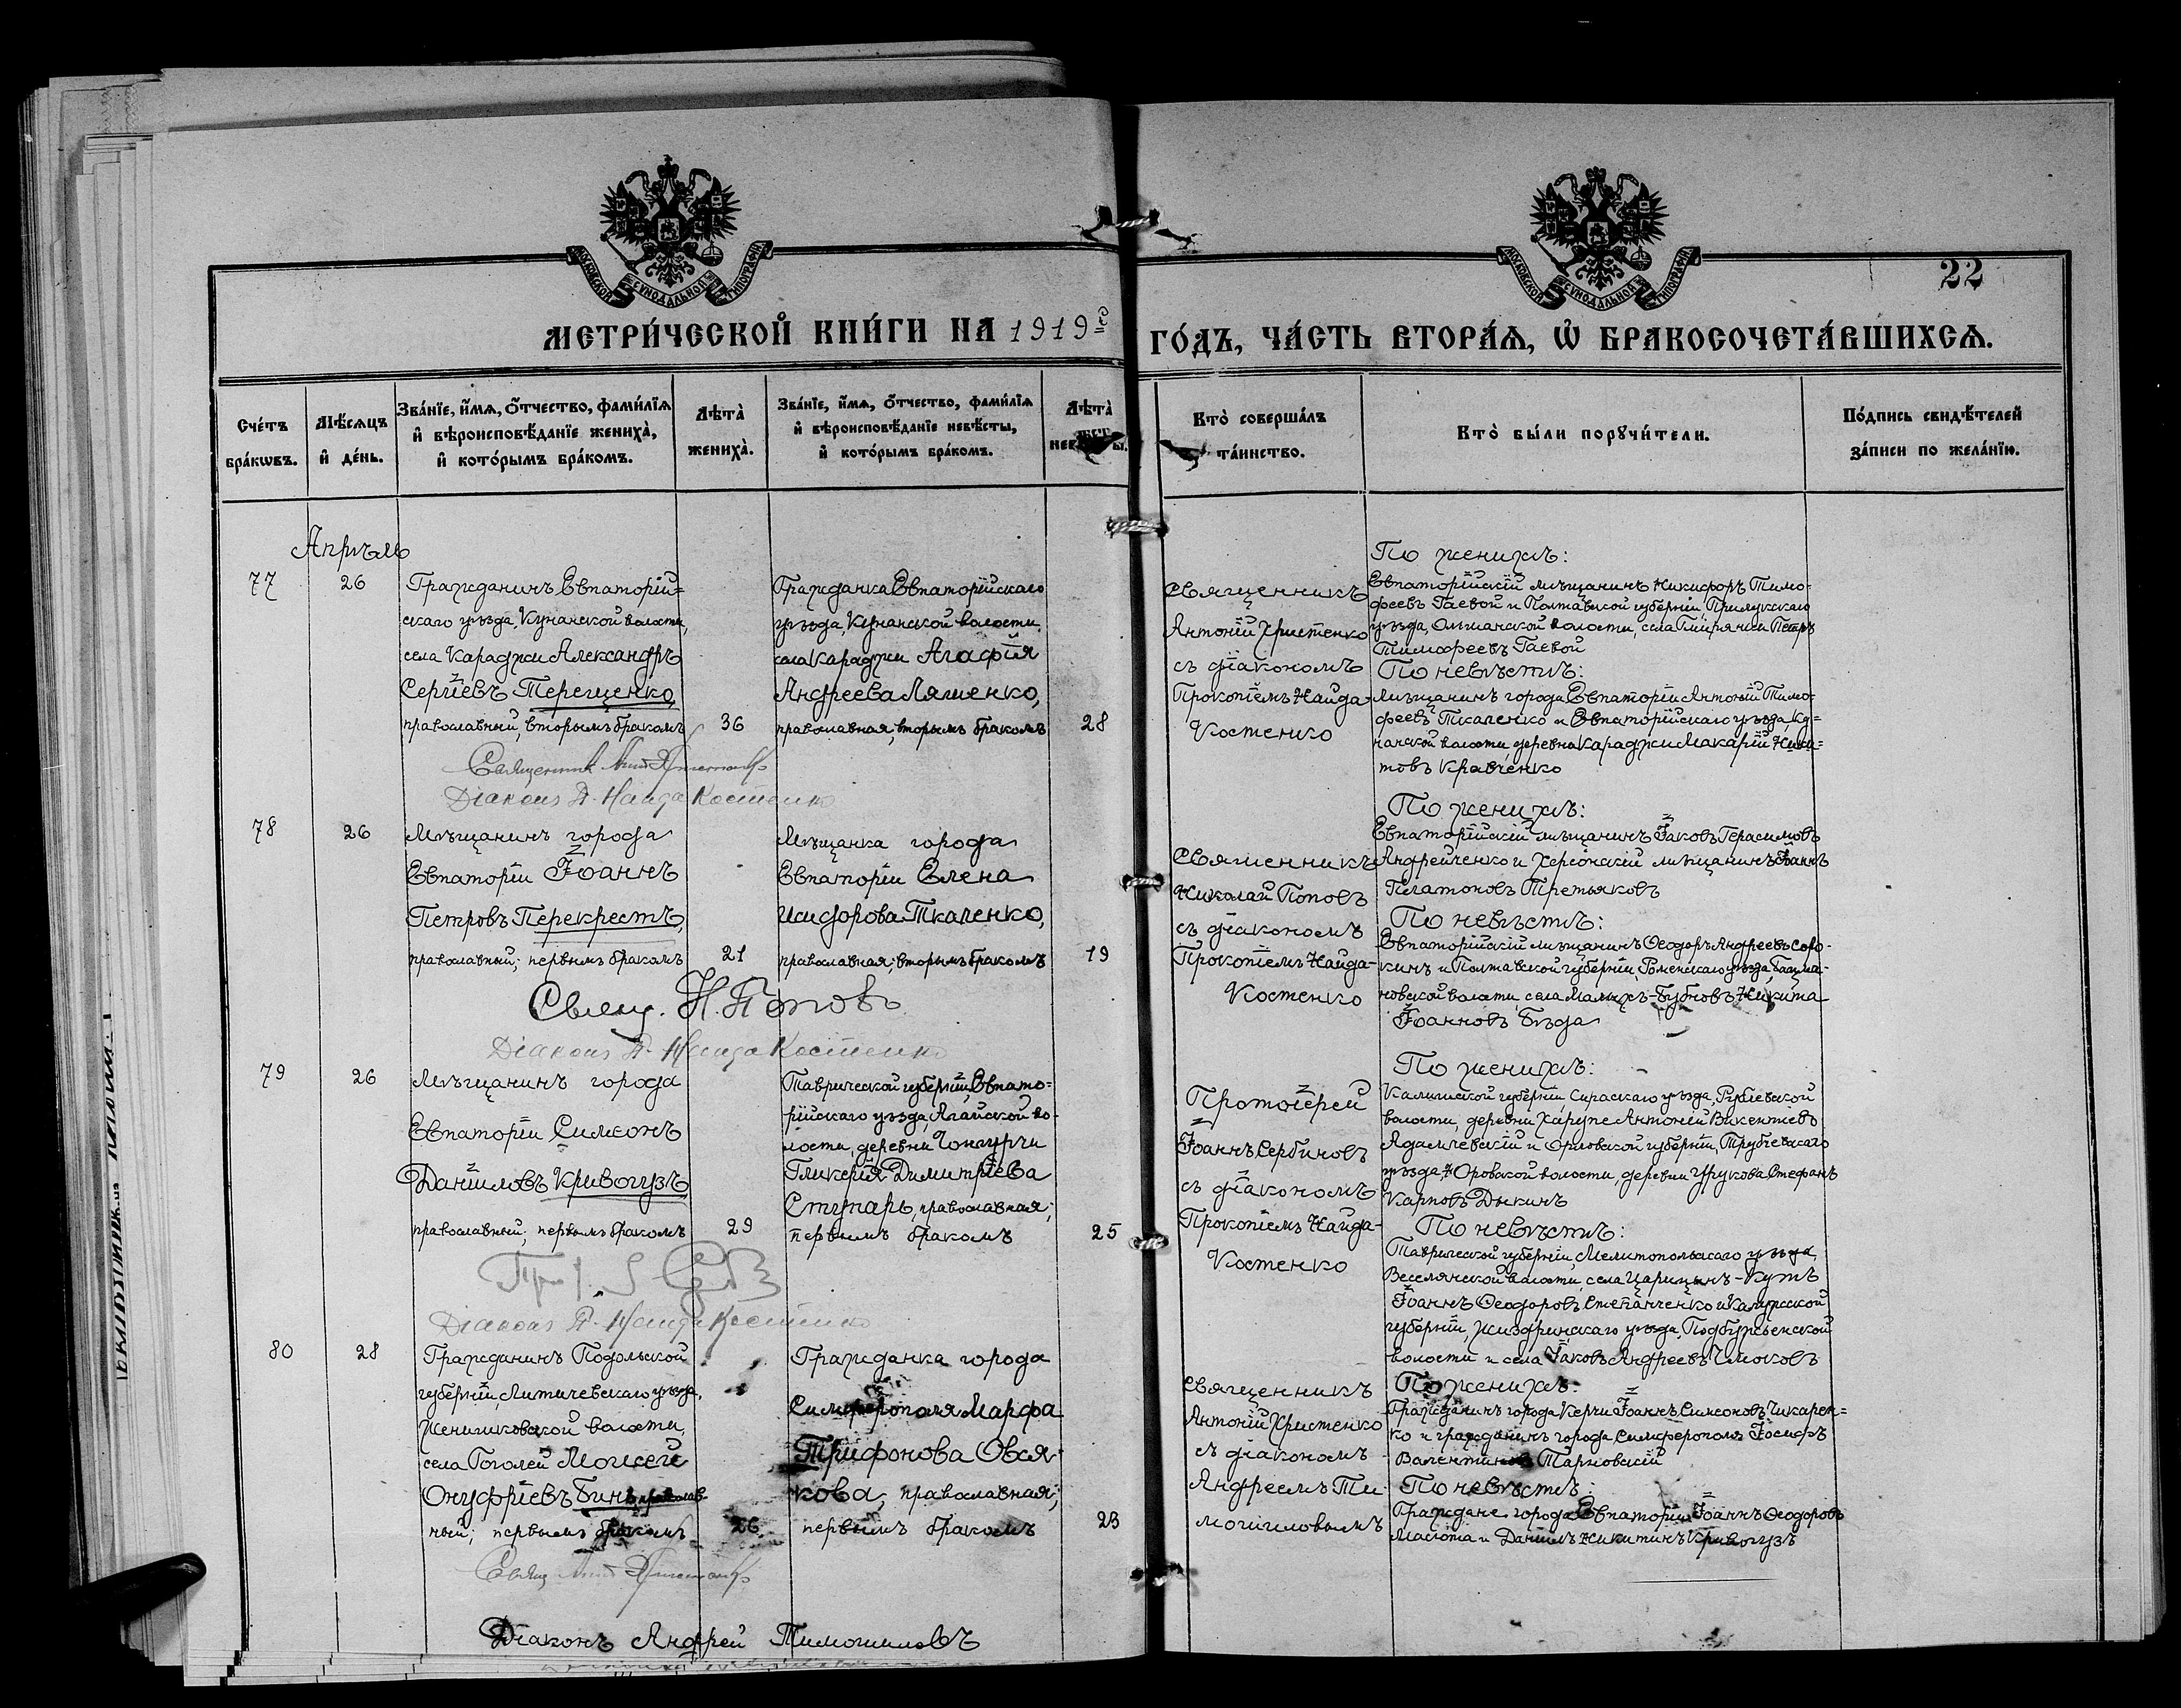 МОСКОВСКОЙ СѴНОДАЛЬНОЙ ТИПОГРАФІИ
МОСКОВСКОЙ СѴНОДАЛЬНОЙ ТИПОГРАФІИ
22
МЕТРИ́ЧЕСКОЙ КНИ́ГИ НА 1919й
ГО́ДЪ, ЧА́СТЬ ВТОРА́Ѧ, Ѡ БРАКОСОЧЕТА́ВШИХСѦ.
Сче́тъ бра́кѡвъ.
Мѣ́сѧцъ и де́нь.
Зва́нїе, и́мѧ, о́тчество, фами́лїѧ
и вѣроисповѣ́данїе жениха̀,
и кото́рымъ бра́комъ.
Лѣта̀ жениха̀.
Зва́нїе, и́мѧ, о́тчество, фами́лїѧ
и вѣроисповѣ́данїе невѣ́сты,
и кото́рымъ бра́комъ.
Лѣта̀ невѣ́сты.
Кто̀ соверша́лъ
та́инство.
Кто̀ бы́ли порꙋчи́тели.
По́дпись свидѣ́телей
за́писи по жела́нїю.
Апрѣль
77
26
Гражданинъ Евпаторій=
скаго уѣзда, Кунанской волости,
села Караджи Александръ
Сергіевъ Терещенко,
православный, вторымъ бракомъ
36
Гражданка Евпаторійскаго
уѣзда, Кунанской волости,
села Караджи Агафія
Андреева Ляшенко,
православная, вторымъ бракомъ
28
Священникъ
Антоній Христенко
съ діакономъ
Прокопіемъ Найда-
Костенко
По женихѣ:
Евпаторійскій мѣщанинъ Никифоръ Тимо-
феевъ Гаевой и Полтавской губерніи Прилукскаго
уѣзда, Ольшанской волости, села Петръ
Тимофеевъ Гаевой
По невѣстѣ:
Мѣщанинъ города Евпаторіи Антоній Тимо-
феевъ Ткаченко и Евпаторійскаго уѣзда, Ку=
нанской волости, деревни Караджи Макарій
Кравченко
Священникъ Ант Христенко
Діаконъ П. Найда Костенко
78
26
Мѣщанинъ города
Евпаторіи Іоаннъ
Петровъ Перекрестъ,
православный; первымъ бракомъ
21
Мѣщанка города
Евпаторіи Елена
Исидорова Ткаченко,
православная; вторымъ бракомъ
19
Священникъ
Николай Поповъ
съ діакономъ
Прокопіемъ Найда-
Костенко
По женихѣ:
Евпаторійскій мѣщанинъ Іаковъ Герасимовъ
Андрейченко и Херсонскій мѣщанинъ Іоаннъ
Платоновъ Третьяковъ
По невѣстѣ:
Евпаторійскій мѣщанинъ Ѳеодоръ Андреевъ Соро-
кинъ и Полтавской губерніи, Роменскаго уѣзда, Бацма-
новской волости, села Малыхъ-Бубновъ Никита
Іоанновъ Бѣда
Свящ. Н. Поповъ
Діаконъ П. Найда Костенко
79
26
Мѣщанинъ города
Евпаторіи Симеонъ
Даніиловъ Кривогузъ
православный; первымъ бракомъ
29
Таврической губерніи, Евпато=
рійскаго уѣзда, Агайской во-
лости, деревни Чонгурчи
Гликерія Димитріева
Ступарь, православная;
первымъ бракомъ
25
Протоіерей
Іоаннъ Сербиновъ
съ діакономъ
Прокопіемъ Найда-
Костенко
По женихѣ:
Калишской губерніи, Сираскаго уѣзда,
волости, деревни Харупе Антоній Викентіевъ
Адамчевскій и Орловской губерніи, Трубчевскаго
уѣзда, волости, деревни Стефанъ
Карповъ Дыкинъ
По невѣстѣ:
Таврической губерніи, Мелитопольскаго уѣзда,
Веселянской волости, села Царицынъ-Кутъ
Іоаннъ Ѳеодоровъ Степанченко и Калужской
губерніи, Жиздринскаго уѣзда, Подбужьенской
волости и села Іаковъ Андреевъ
Діаконъ П. Найда Костенко
80
28
Гражданинъ Подольской
губерніи, Литичевскаго уѣзда,
Женишковской волости,
села Гоголей Моисей
Онуфріевъ православ-
ный; первымъ бракомъ
26
Гражданка города
Симферополя Марфа
Трифонова Овся-
кова, православная;
первымъ бракомъ
23
Священникъ
Антоній Христенко
съ діакономъ
Андреемъ Ти-
мошиловымъ
По женихѣ:
Гражданинъ города Керчи Іоаннъ Симеоновъ Чикарен=
ко и гражданинъ города Симферополя Іосифъ
Валентиновъ Тарновскій
По невѣстѣ:
Граждане города Евпаторіи Іоаннъ Ѳеодоровъ
Маслота и Даніилъ Никитинъ Кривогузъ
Свящ Ант Христенко
Діаконъ Андрей Тимошиловъ